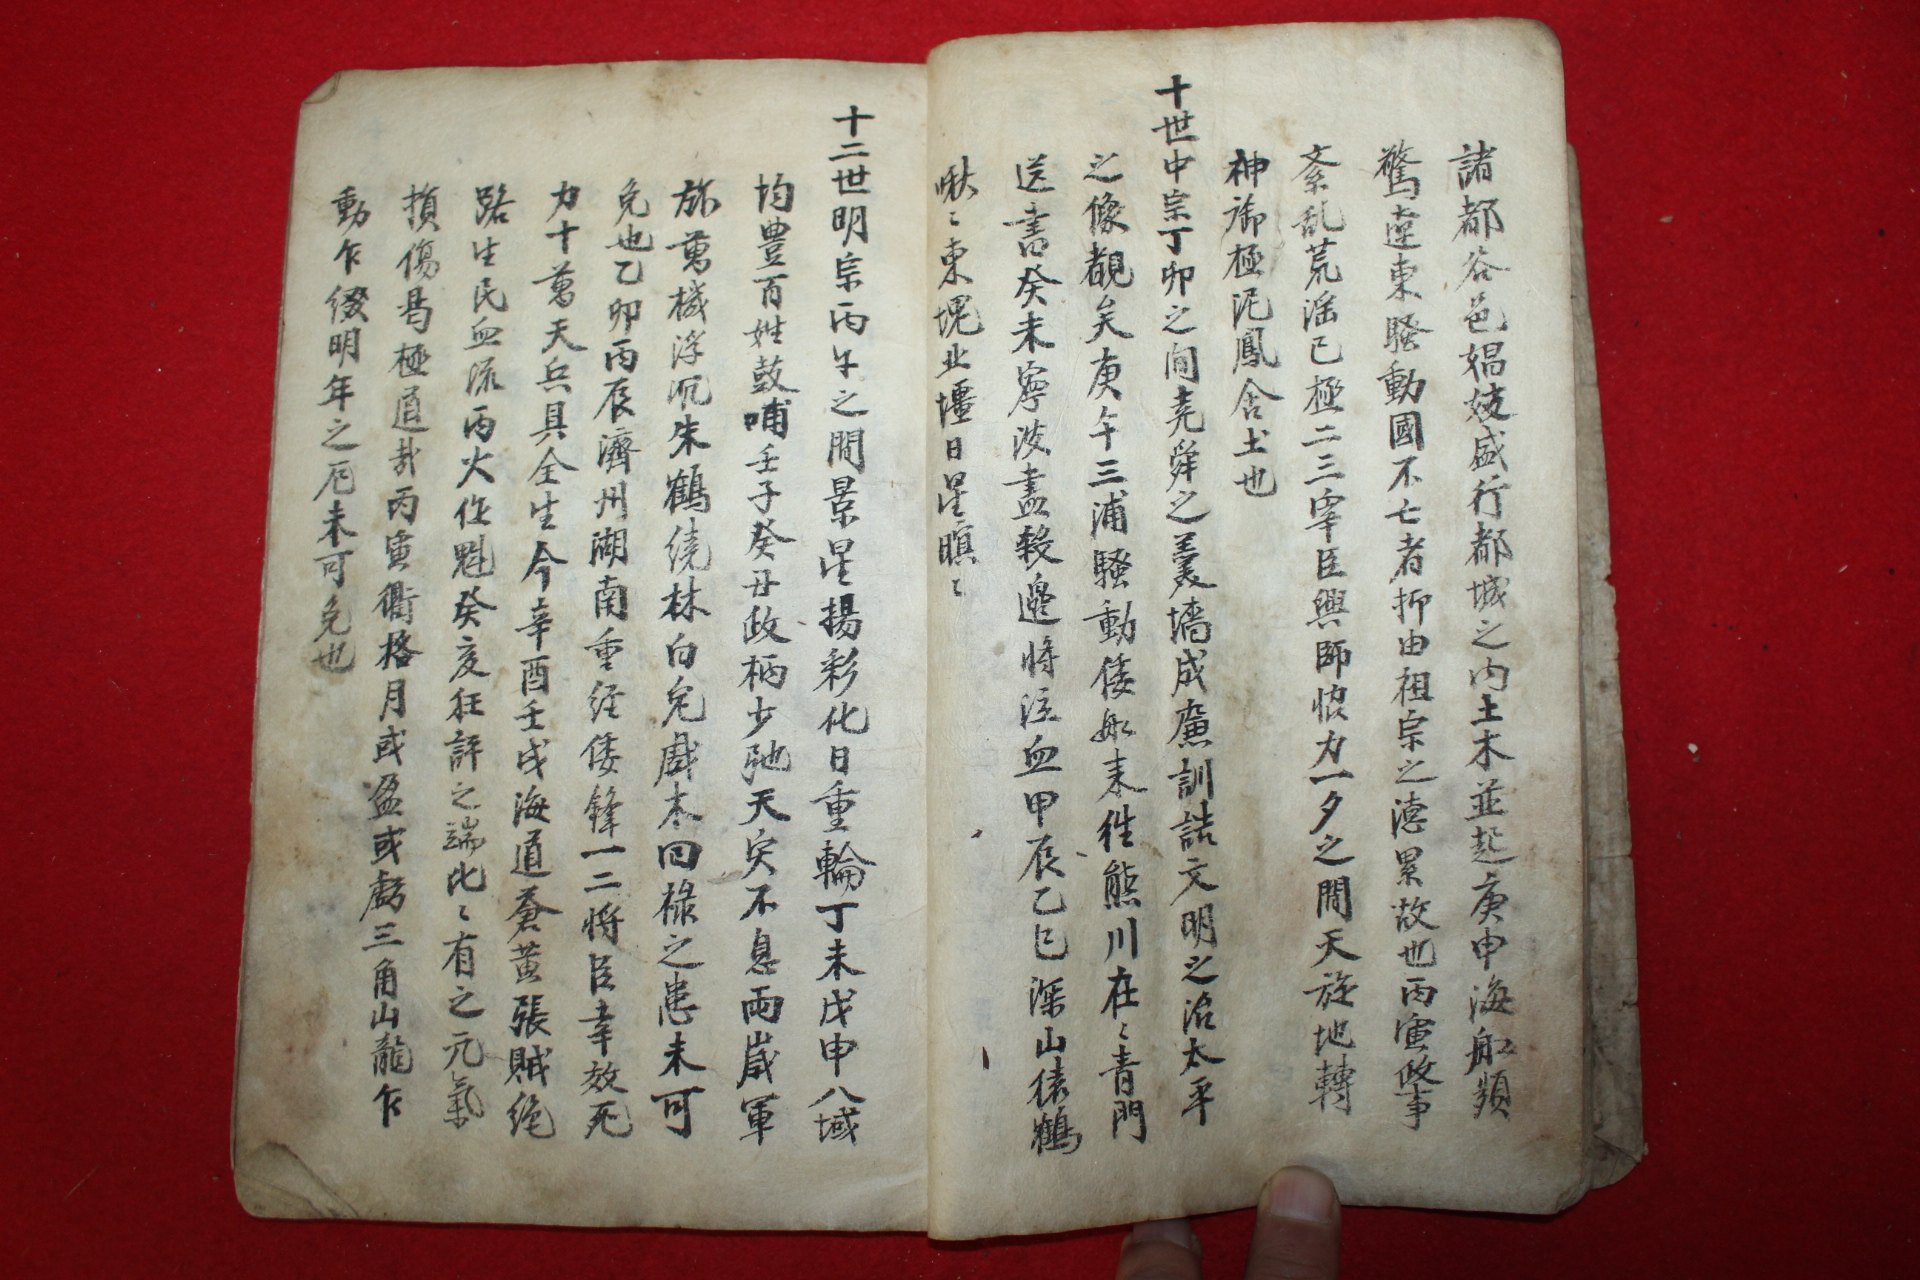 諸都谷邑娼妓盛行都城之内土木並起庚申海船頻
驚遼東騷動國不亡者抑由祖宗之德累故也丙寅政事
紊乱荒滛已極二三宰臣興師恊力一夕之間天旋地轉
神御極泥鳳含土也
十世中宗丁卯之间堯舜之羹墻成廉訓詰文明之治太平
之像覩矣庚午三浦騷動倭船来徃熊川在〻青門
送書癸未寧波盡殺邊将泣血甲辰乙巳深山猿鶴
啾〻東堄业壃日星暝〻
十二世明宗丙午之間景星揚彩化日重輪丁未戊申八域
均豊百姓鼓哺壬子癸丑政柄少弛天灾不息両歲軍
旅萬機浮沉朱鶴繞林白兎戱木回祿之患未可
免也乙卯丙辰濟州湖南重経倭鋒一二将臣幸效死
力十萬天兵具全生今辛酉壬戌海道蒼黃張賊绝
路生民血流丙火作魁癸亥狂評之端比〻有之元氣
損傷曷極道㢤丙寅衢格月或盈或虧三角山龍乍
動乍缀明年之厄未可免也